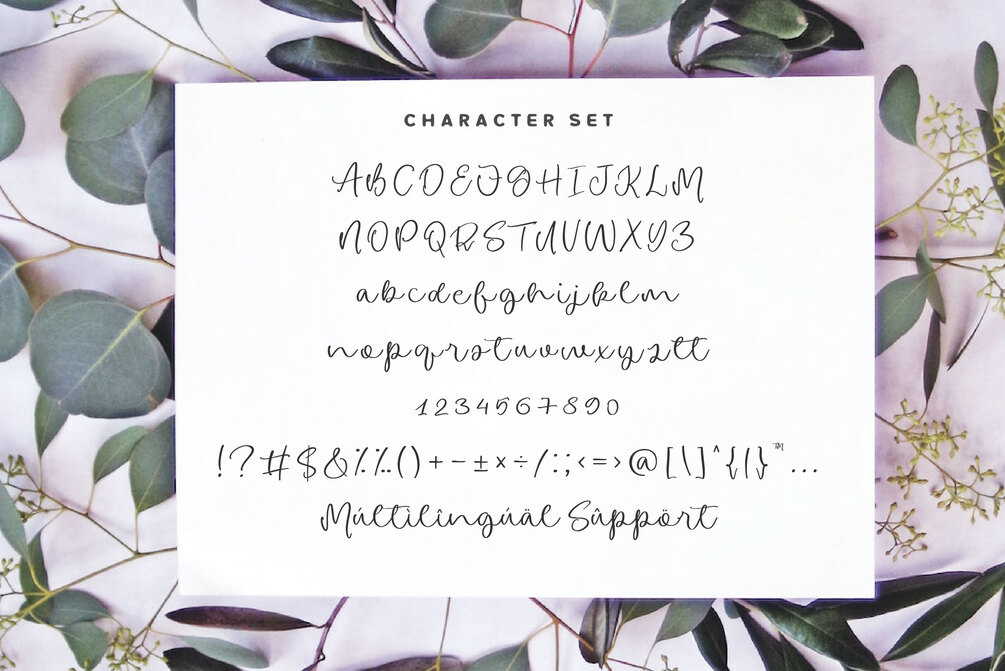 CHARACTER SET
ABCDEFGHIJKLM
NOPQRSTUVWXYZ
abcdefghijklm
nopqrstuvwxyztt
1234567890
!?#$&٪٪..()+−±×÷/:;<=>@[\]^{|}™...
Múltilîngúäl Sûppört